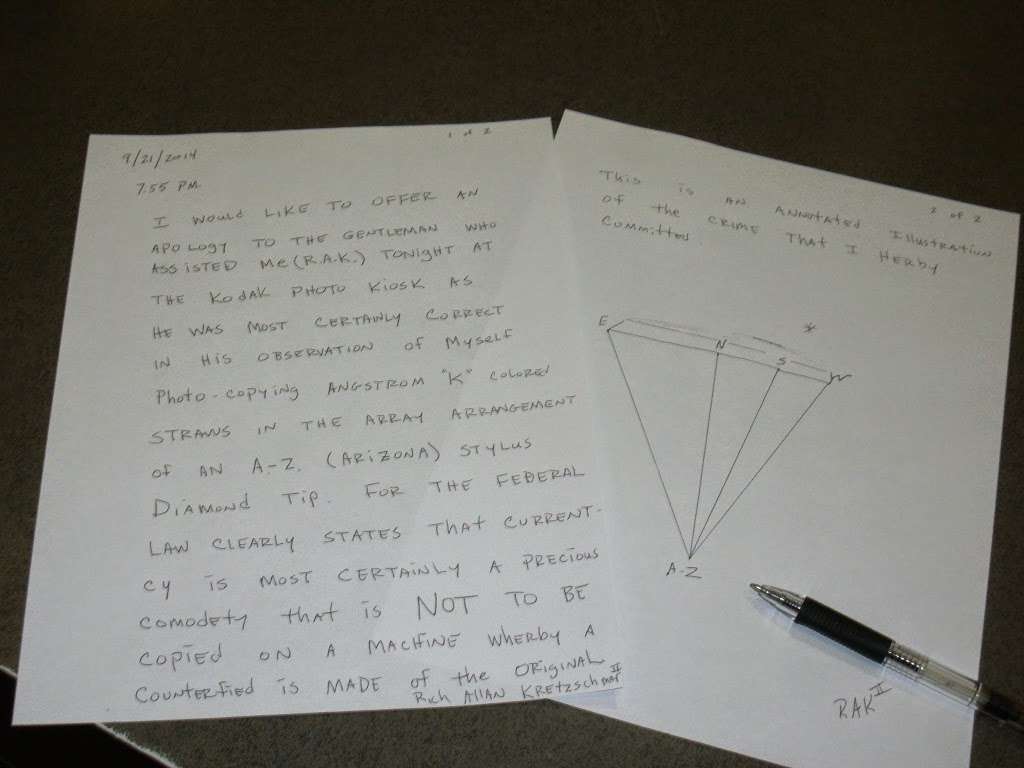 1 of 2
9/21/2014
7:55 PM.
I WOULD LIKE TO OFFER AN
APOLOGY TO THE GENTLEMAN WHO
ASSISTED Me (R.A.K.) TONIGHT AT
THE KODAK PHOTO KIOSK AS
HE WAS MOST CERTAINLY CORRECT
IN HIS OBSERVATION OF MYSELF
PHOTO-COPYING ANGSTROM "K" COLORED
STRAWS IN THE ARRAY ARRANGEMENT
OF AN A-Z. (ARIZONA) STYLUS
DIAMOND TIP. FOR THE FEDERAL
LAW CLEARLY STATES THAT CURRENT-
CY IS MOST CERTAINLY A PRECIOUS
COMODETY THAT IS NOT TO BE
COPIED ON A MACHINE WHERBY A
COUNTERFIED IS MADE OF THE ORIGINAL
RICH ALLAN KRETZSCHMAR II
2 of 2
THIS IS AN ANNOTATED ILLUSTRATION
OF THE CRIME THAT I HERBY
COMMITTED.
*
E N S W
A-Z
RAK II